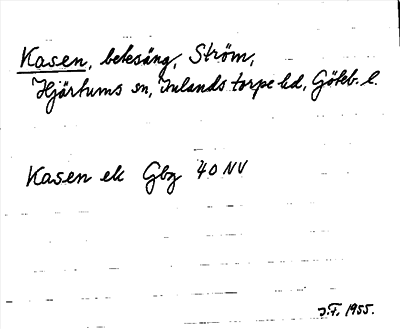 Kasen, betesäng, Ström,
Hjärtums sn, Inlands torpe hd, Göteb. l.
Kasen ek Gbg 40 NV
J.F. 1955.